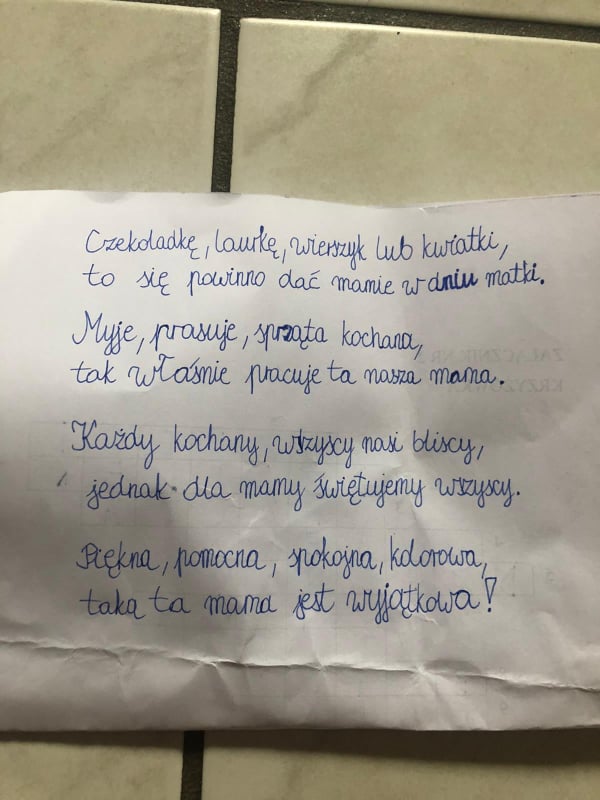 Czekoladkę, laurkę, wierszyk lub kwiatki,
to się powinno dać mamie w dniu matki.
Myje, prasuje, sprząta kochana,
tak właśnie pracuje ta nasza mama.
Każdy kochany, wszyscy nasi bliscy,
jednak dla mamy świętujemy wszyscy.
Piękna, pomocna, spokojna, kolorowa,
taką ta mama jest wyjątkowa!
ZAŁĄCZNIK NR